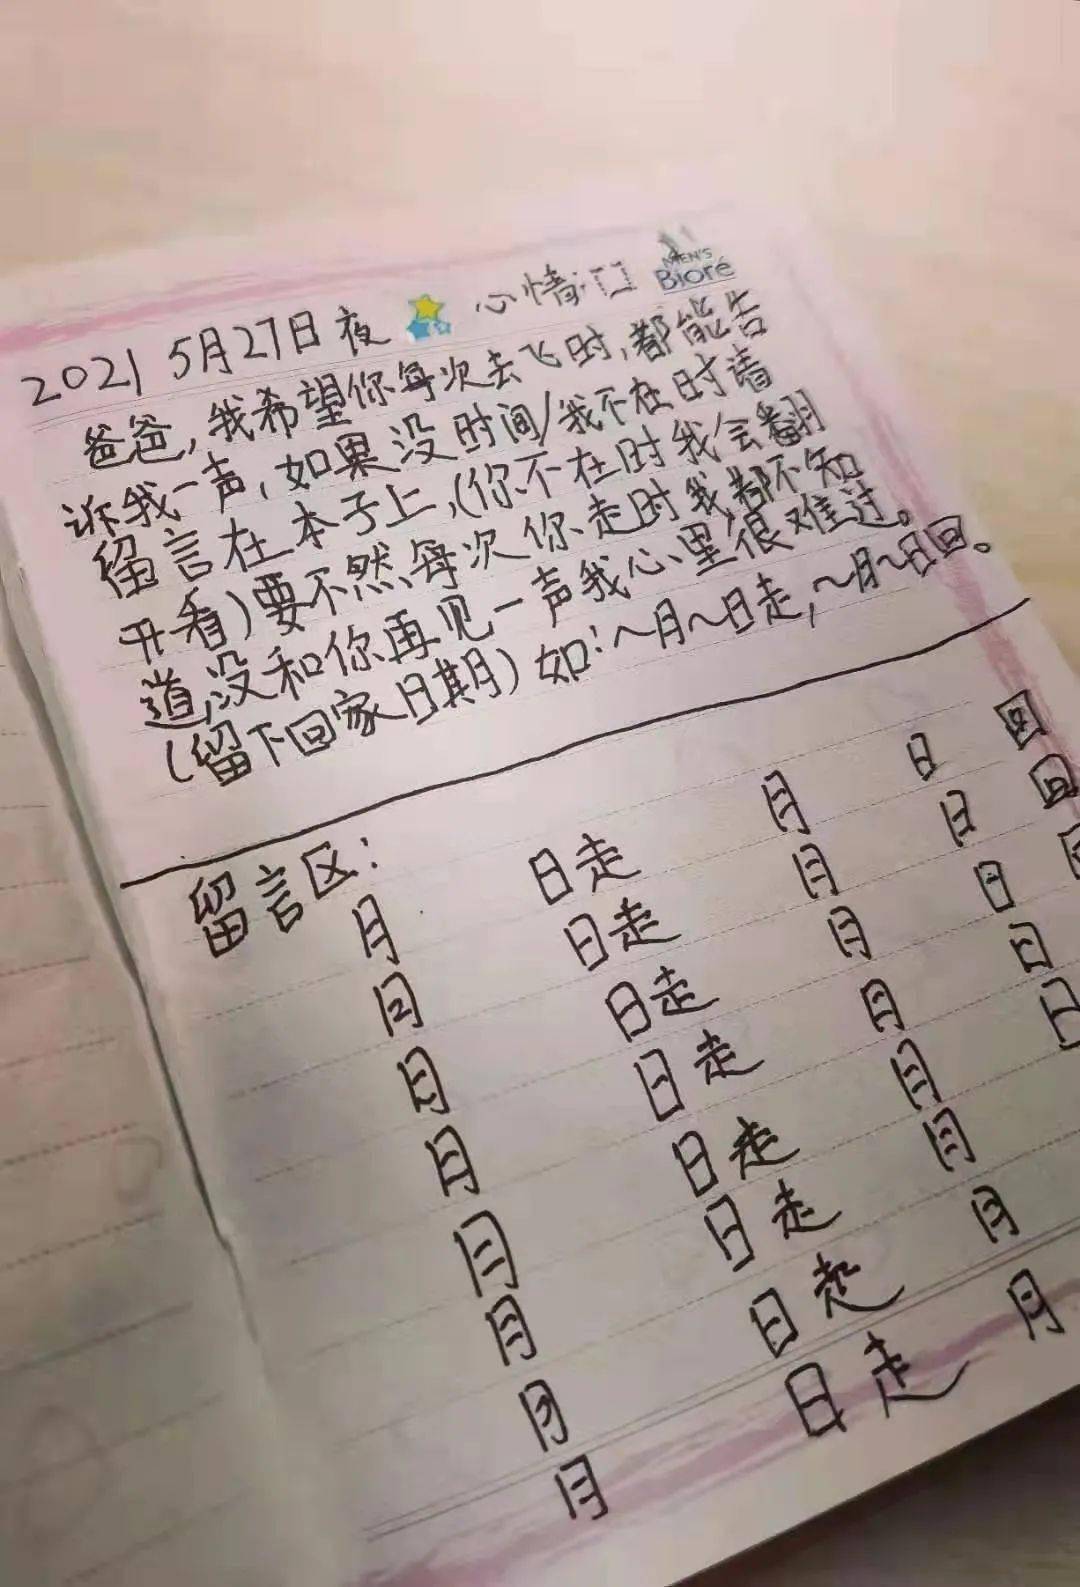 2021 5月27日夜 心情:口
MEN'S
Bioré
爸爸,我希望你每次去飞时,都能告
诉我一声,如果没时间/我不在时请
留言在本子上,(你不在时我会翻
开看)要不然每次你走时我都不知
道,没和你再见一声我心里很难过。
(留下回家日期)如:~月~日走,~月~日回。
留言区:
月 日走 月 日 回
月 日走 月 日 回
月 日走 月 日 回
月 日走 月 日
月 日走 月 日
月 日走 月
月 日走 月
月 日走 月